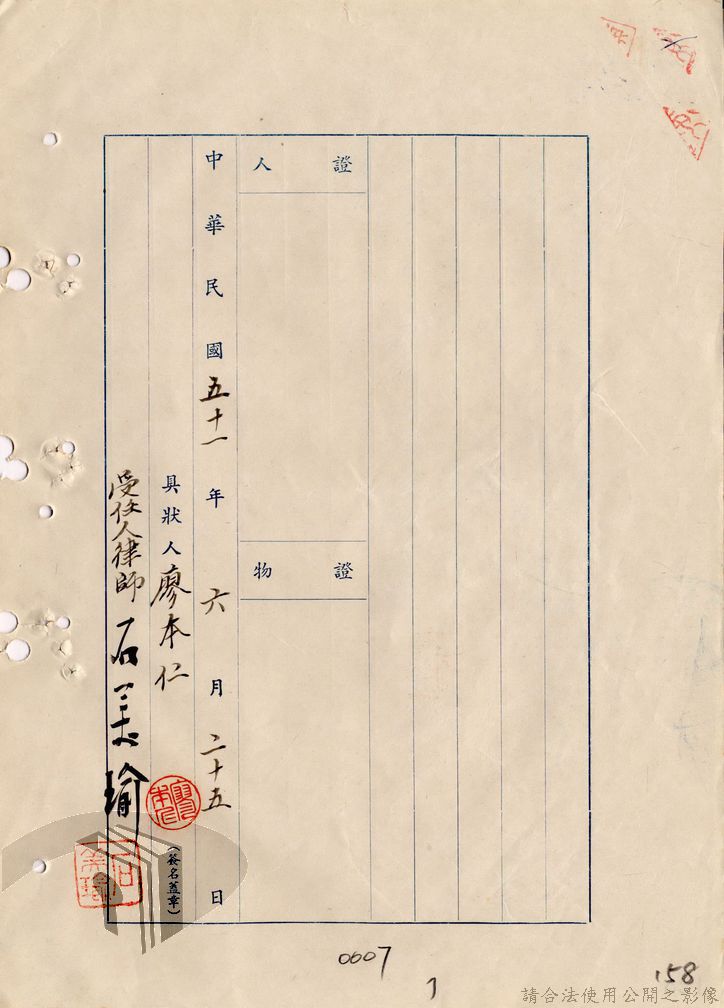 證人
證物
中華民國五十一年六月二十五日
具狀人廖本仁
(簽名蓋章)
受任人律師石美瑜
廖本仁
石美瑜
0007
158
請合法使用公開之影像